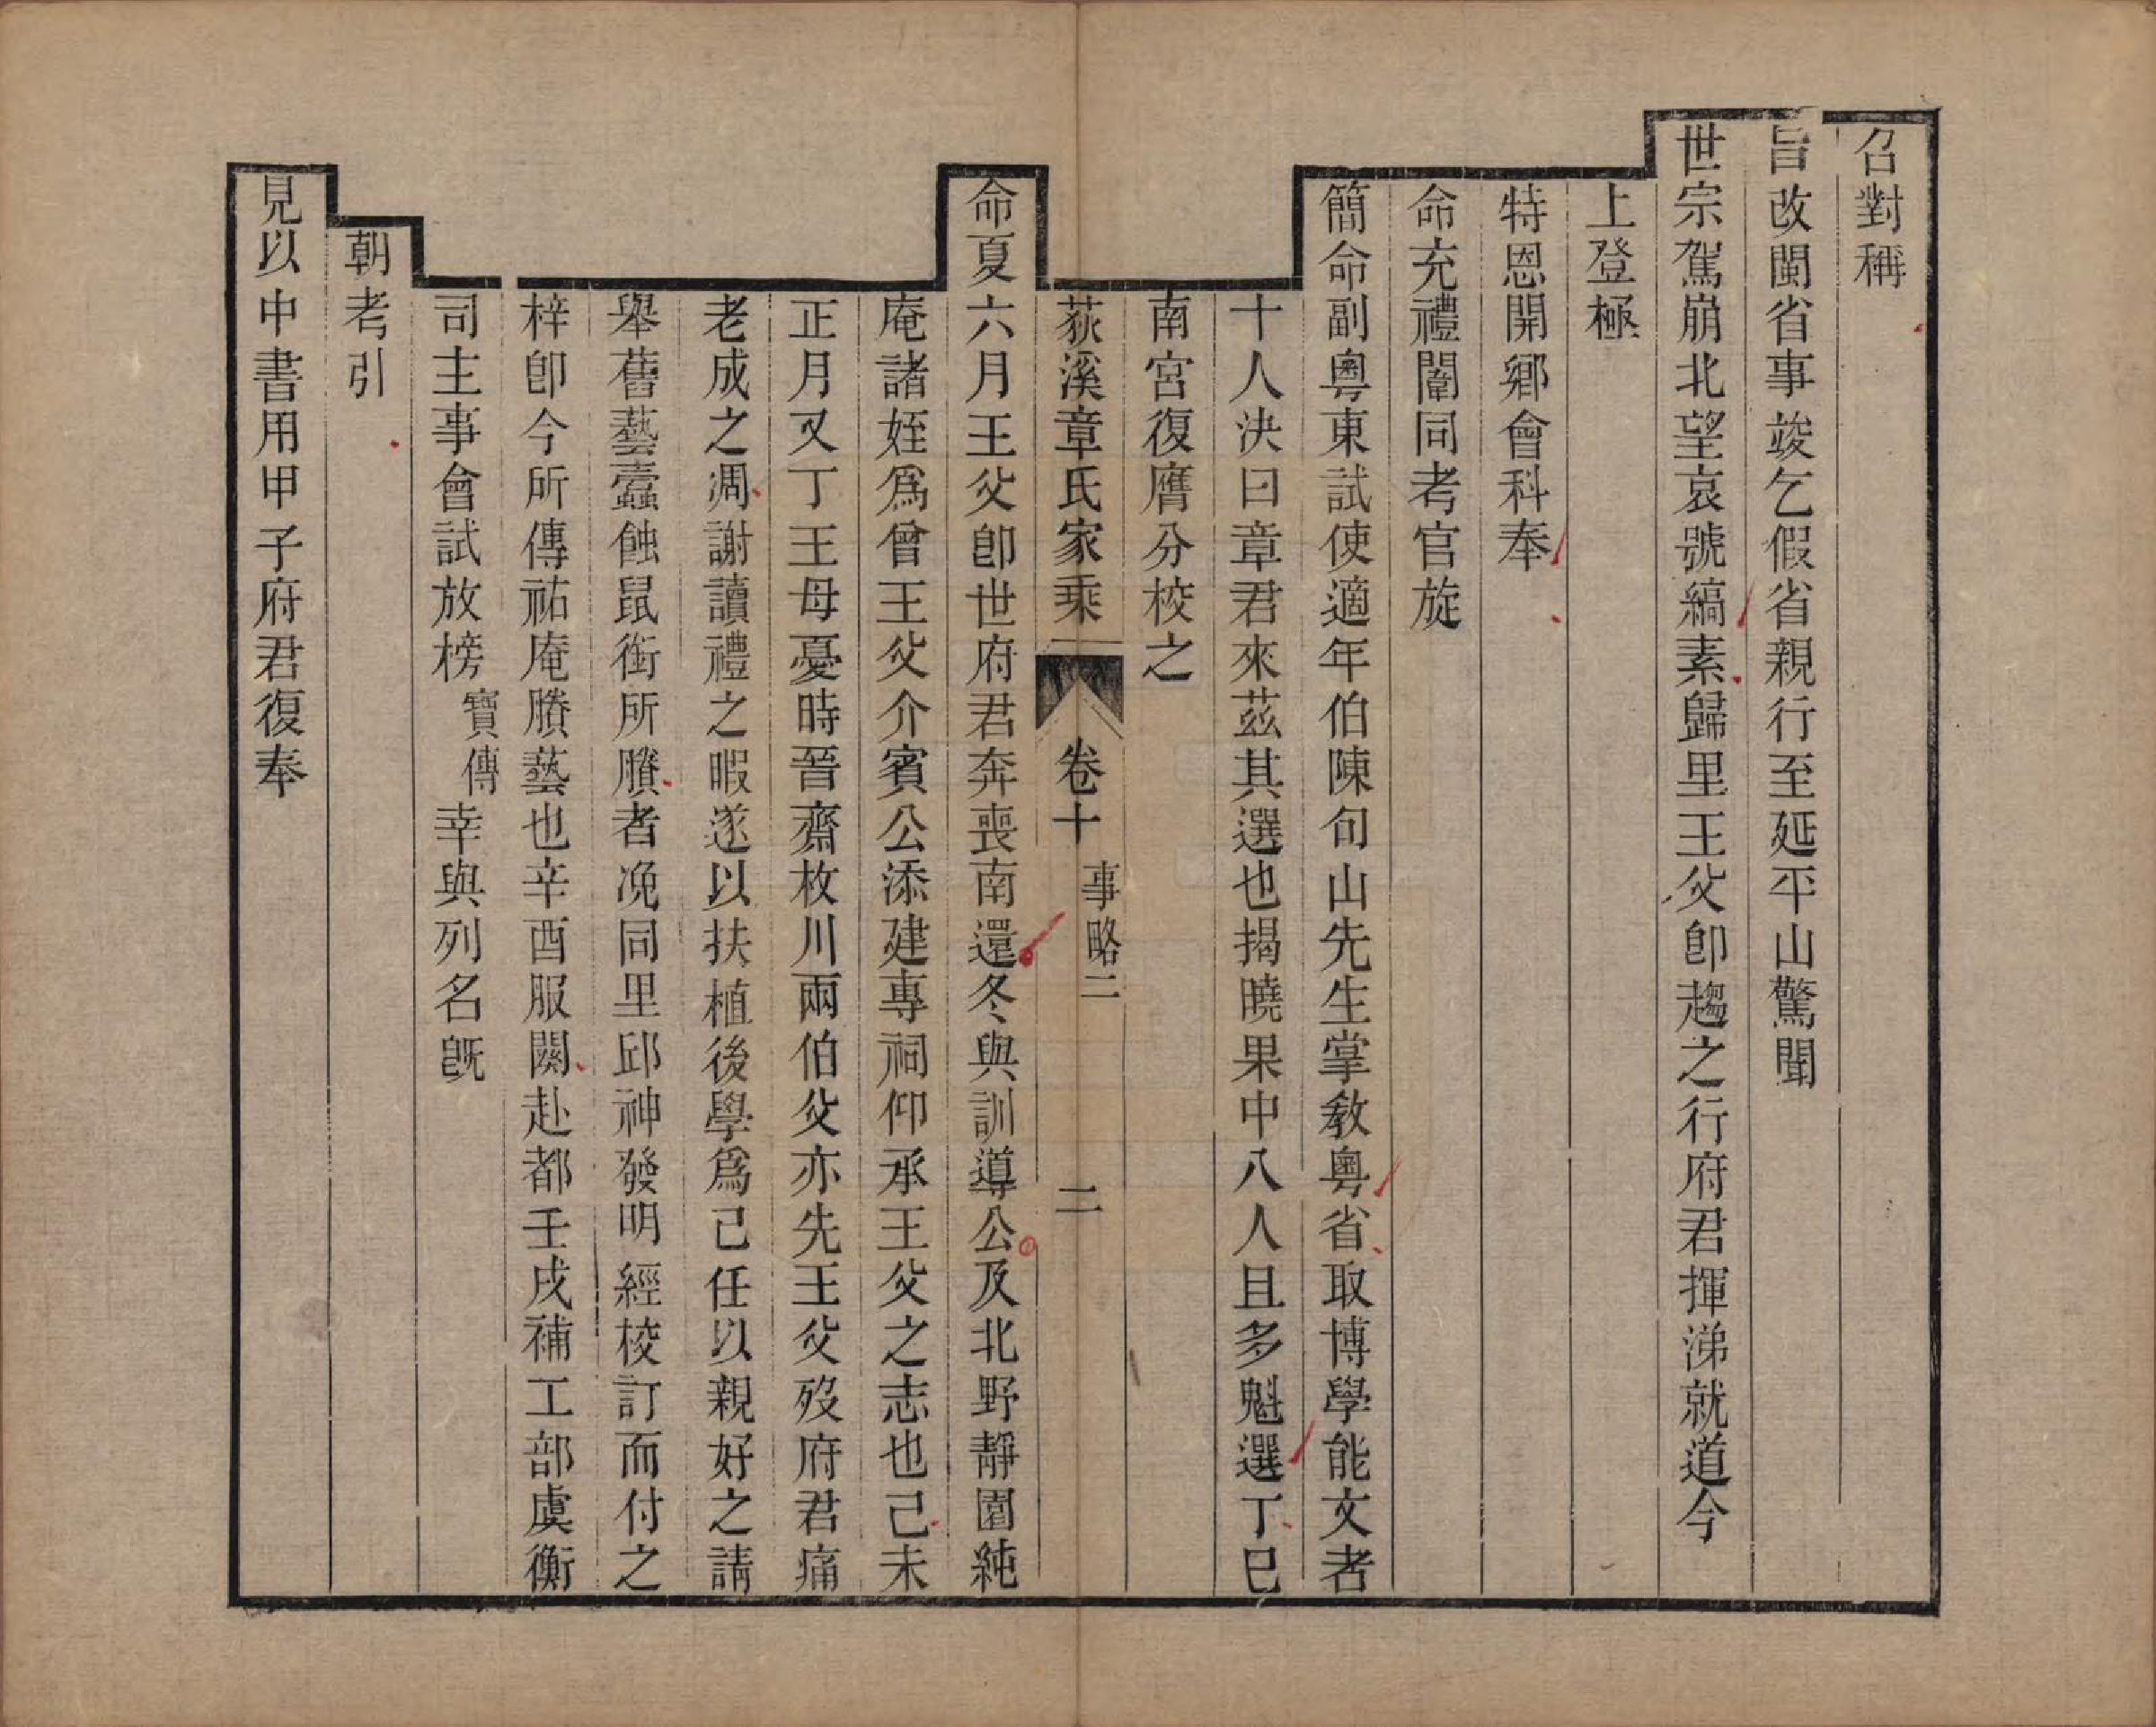 召對稱
旨改閩省事竣乞假省親行至延平山驚聞
世宗駕崩北望哀號縞素歸里王父卽趨之行府君揮涕就道今
上登極
特恩開鄉會科奉
命充禮闈同考官旋
簡命副粵東試使適年伯陳句山先生掌敎粵省取博學能文者
十人決曰章君來茲其選也揭曉果中八人且多魁選丁巳
南宮復膺分校之
荻溪章氏家乘 卷十 事略二 二
命夏六月王父卽世府君奔喪南還冬與訓導公及北野靜園純
庵諸姪爲曾王父介賓公添建專祠仰承王父之志也己未
正月又丁王母憂時晉齋枚川兩伯父亦先王父歿府君痛
老成之凋謝讀禮之暇遂以扶植後學爲己任以親好之請
舉舊藝蠹蝕鼠銜所賸者浼同里邱神發明經校訂而付之
梓卽今所傳祐庵賸藝也辛酉服闋赴都壬戌補工部虞衡
司主事會試放榜寶傳幸與列名旣
朝考引
見以中書用甲子府君復奉